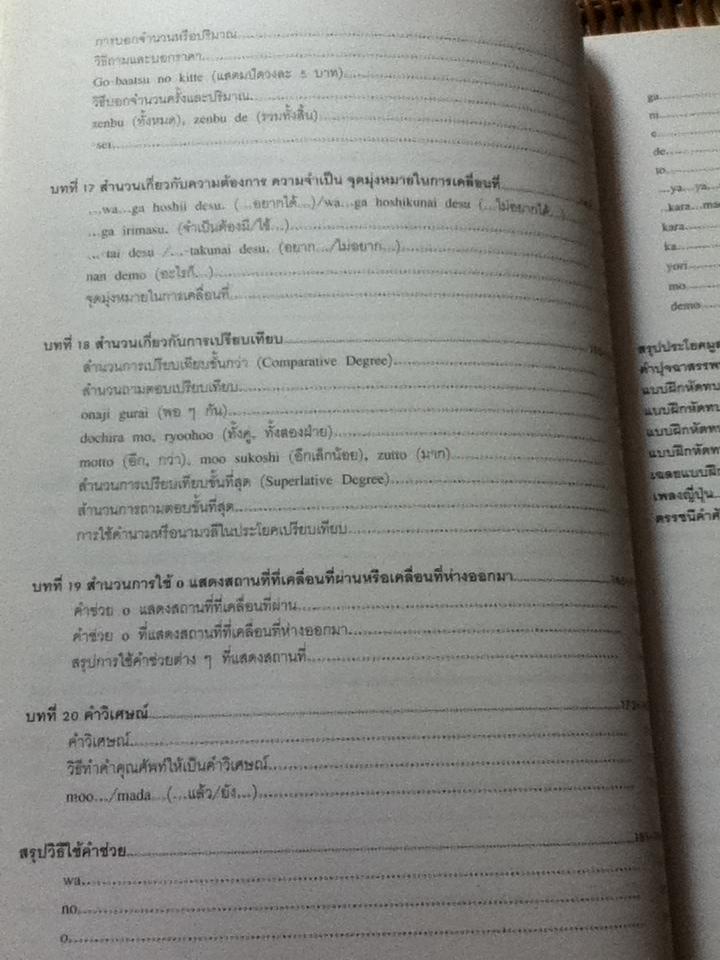 การบอกจำนวนหรือปริมาณ
วิธีถามและบอกราคา
Go-baatsu no kitte (แสตมป์ดวงละ 5 บาท)
วิธีบอกจำนวนครั้งและปริมาณ
zenbu (ทั้งหมด), zenbu de (รวมทั้งสิ้น)
-sei
บทที่ 17 สำนวนเกี่ยวกับความต้องการ ความจำเป็น จุดมุ่งหมายในการเคลื่อนที่
...wa...ga hoshii desu. (...อยากได้...)/wa...ga hoshikunai desu (...ไม่อยากได้...)
...ga irimasu. (จำเป็นต้องมี/ใช้...)
...-tai desu /...-takunai desu. (อยาก.../ไม่อยาก...)
nan demo (อะไรก็...)
จุดมุ่งหมายในการเคลื่อนที่
บทที่ 18 สำนวนเกี่ยวกับการเปรียบเทียบ
สำนวนการเปรียบเทียบขั้นกว่า (Comparative Degree)
สำนวนถามตอบเปรียบเทียบ
onaji gurai (พอ ๆ กัน)
dochira mo, ryoohoo (ทั้งคู่, ทั้งสองฝ่าย)
motto (อีก, กว่า), moo sukoshi (อีกเล็กน้อย), zutto (มาก)
สำนวนการเปรียบเทียบขั้นที่สุด (Superlative Degree)
สำนวนการถามตอบขั้นที่สุด
การใช้คำนามหรือนามวลีในประโยคเปรียบเทียบ
บทที่ 19 สำนวนการใช้ o แสดงสถานที่ที่เคลื่อนที่ผ่านหรือเคลื่อนที่ห่างออกมา
คำช่วย o แสดงสถานที่ที่เคลื่อนที่ผ่าน
คำช่วย o ที่แสดงสถานที่ที่เคลื่อนที่ห่างออกมา
สรุปการใช้คำช่วยต่าง ๆ ที่แสดงสถานที่
บทที่ 20 คำวิเศษณ์
คำวิเศษณ์
วิธีทำคำคุณศัพท์ให้เป็นคำวิเศษณ์
moo.../mada...(...แล้ว/ยัง...)
สรุปวิธีใช้คำช่วย
wa
no
o
ga
ni
e
de
to
...ya...ya
...kara...mad
kara
ka
yori
mo
demo
สรุปประโยคมูล
คำปุจฉาสรรพ
แบบฝึกหัดทบ
แบบฝึกหัดทบ
แบบฝึกหัดทบ
แบบฝึกหัดทบ
เฉลยแบบฝึก
เพลงญี่ปุ่น
ดรรชนีคำศั